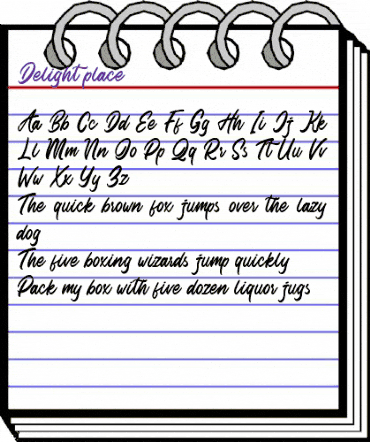 Delight place
Aa Bb Cc Dd Ee Ff Gg Hh Ii Jj Kk
Ll Mm Nn Oo Pp Qq Rr Ss Tt Uu Vv
Ww Xx Yy Zz
The quick brown fox jumps over the lazy
dog
The five boxing wizards jump quickly
Pack my box with five dozen liquor jugs